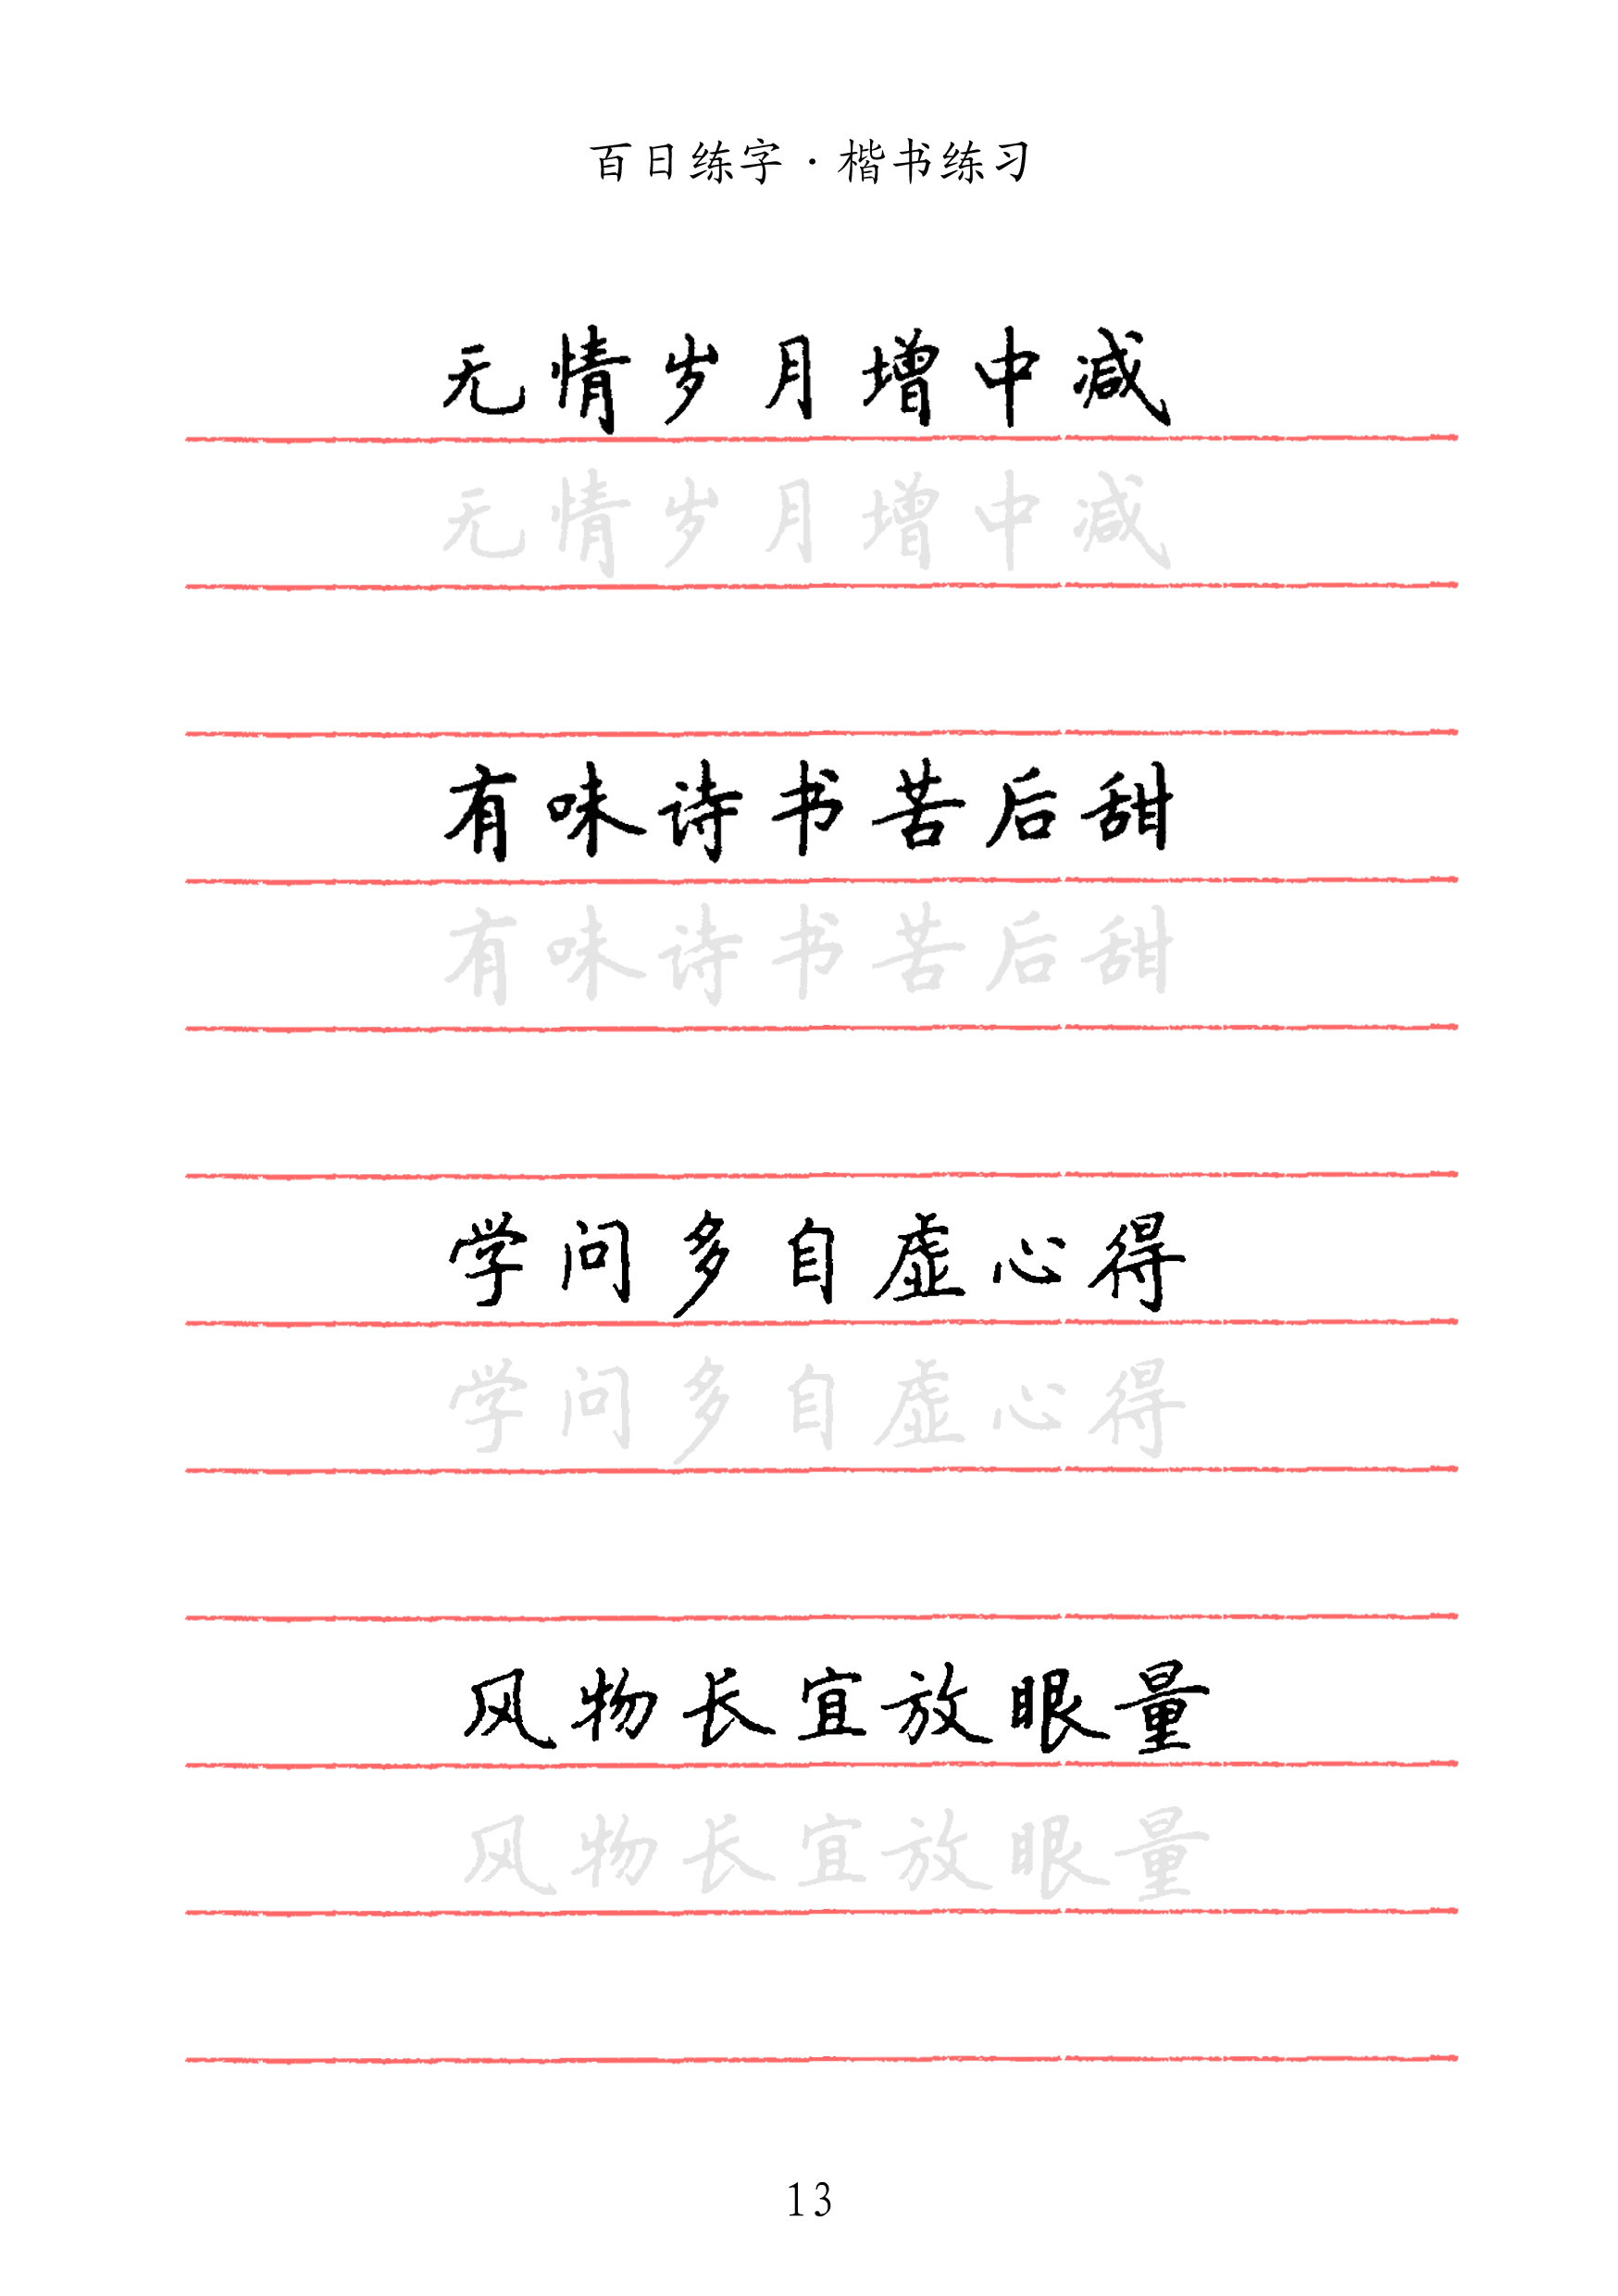 百日练字·楷书练习
无情岁月增中减
无情岁月增中减
有味诗书苦后甜
有味诗书苦后甜
学问多自虚心得
学问多自虚心得
风物长宜放眼量
风物长宜放眼量
13